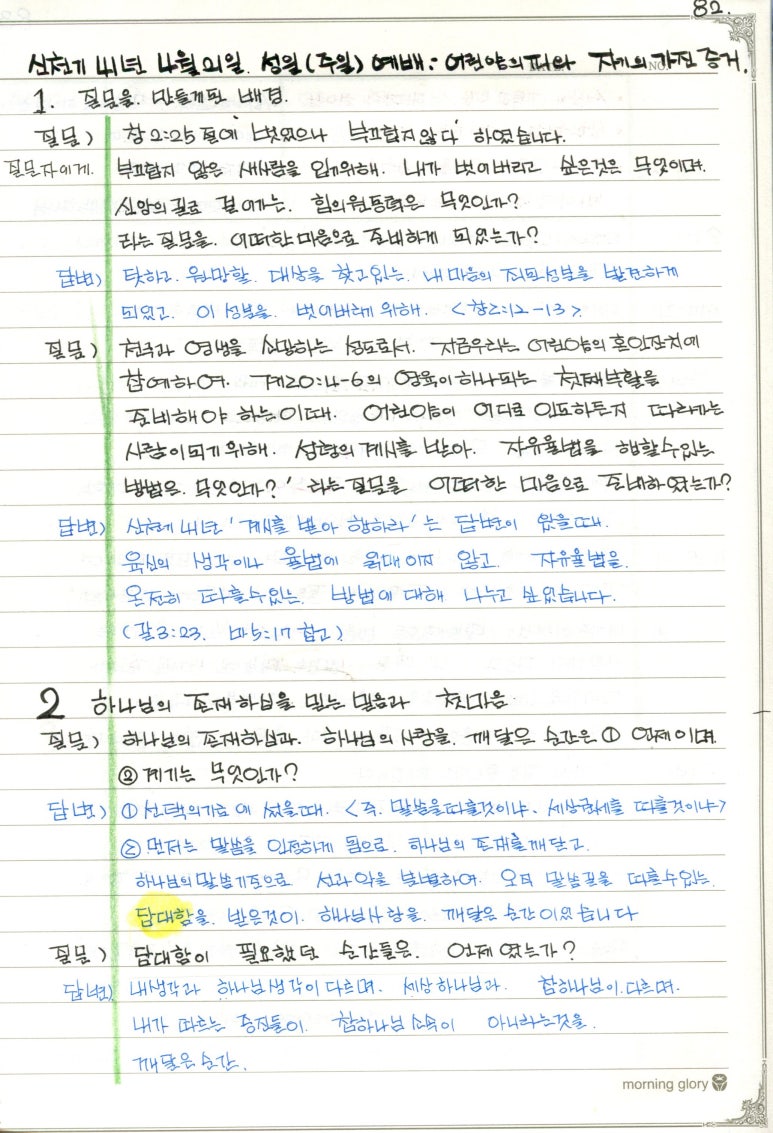 82.
신천기 41년 4월 21일. 성일(주일) 예배: 어린양의 피와 자기의 가진 증거.
1. 질문을. 만들게된 배경.
질문) 창2:25절에 '벗었으나 부끄럽지 않다' 하였습니다.
질문자에게. 부끄럽지 않은 새사람을 입기위해. 내가 벗어버리고 싶은것은 무엇이며.
신앙의 길로 걸어가는. 힘의 원동력은 무엇인가?
라는 질문을. 어떠한 마음으로 준비하게 되었는가?
답변) 탓하고. 원망할. 대상을 찾고있는. 내 마음의 죄된성분을 발견하게
되었고. 이 성분을. 벗어버리기 위해. <창2:12-13>
질문) 천국과 영생을 소망하는 성도로서. 지금우리는 어린양의 혼인잔치에
참예하여. 계20:4-6의 영육이 하나되는 첫째부활을
준비해야 하는이때. 어린양이 어디로 인도하든지 따라가는
사람이되기 위해. 성령의 계시를 받아. 자유율법을 행할수있는
방법은. 무엇인가?' 라는 질문을 어떠한 마음으로 준비하였는가?
답변) 신천기 41년 '계시를 받아 행하라'는 답변이 왔을때.
육신의 생각이나 율법에 얽매이지 않고. 자유율법을.
온전히 따를수있는. 방법에 대해 나누고 싶었습니다.
(갈3:23. 마5:17 참고)
2 하나님의 존재하심을 믿는 믿음과 첫마음
질문) 하나님의 존재하심과. 하나님의 사랑을. 깨달은 순간은 ① 언제이며
② 계기는 무엇인가?
답변) ① 선택의기로에 섰을때. <즉. 말씀을따를것이냐. 세상권세를 따를것이냐>
② 먼저는 말씀을 인정하게 됨으로. 하나님의 존재를깨닫고.
하나님의말씀기준으로 선과 악을 분별하여. 오직 말씀길을 따를수있는.
담대함을. 받은것이. 하나님사랑을. 깨달은 순간이었습니다
질문) 담대함이 필요했던 순간들은. 언제였는가?
답변) 내생각과 하나님생각이 다르며. 세상하나님과. 참하나님이.다르며.
내가 따르는 증진들이. 참하나님 소속이 아니라는것을.
깨달은 순간.
morning glory